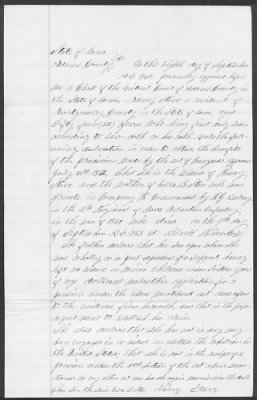 State of Iowa
Adams County
On this eighth day of September
A.D. 1868 personally appeared before
me a Clerk of the District Court of Adams County in
the State of Iowa, Nancy Starr a resident of
Montgomery County in the State of Iowa aged
fifty four (54) years who being first duly sworn
according to law doth on her oath make the fol-
lowing declaration in order to obtain the benefits
of the provisions made by the act of Congress approved
July 14th 1862. That she is the Widow of Henry
Starr and the mother of Starr who was
private in Company H Commanded by
in the 4th Regiment of Iowa Infantry
in the war of 1861 who died on the 7th day
of September A.D. 1863 at Black
She further declares that her son upon whom she
was wholly or in part dependent for support having
left no widow or minor children under sixteen years
of age declarant makes this application for a
pension under the above mentioned act and refers
to the evidence filed herewith and that in the proper
department to establish her claim
She also declares that she has not in any way
been engaged in or aided or abetted the rebellion in
the United States, that she is not in the receipt of a
pension under the 2nd section of the act above men-
tioned or any other act nor has she again married since the death
of her son
Nancy Starr